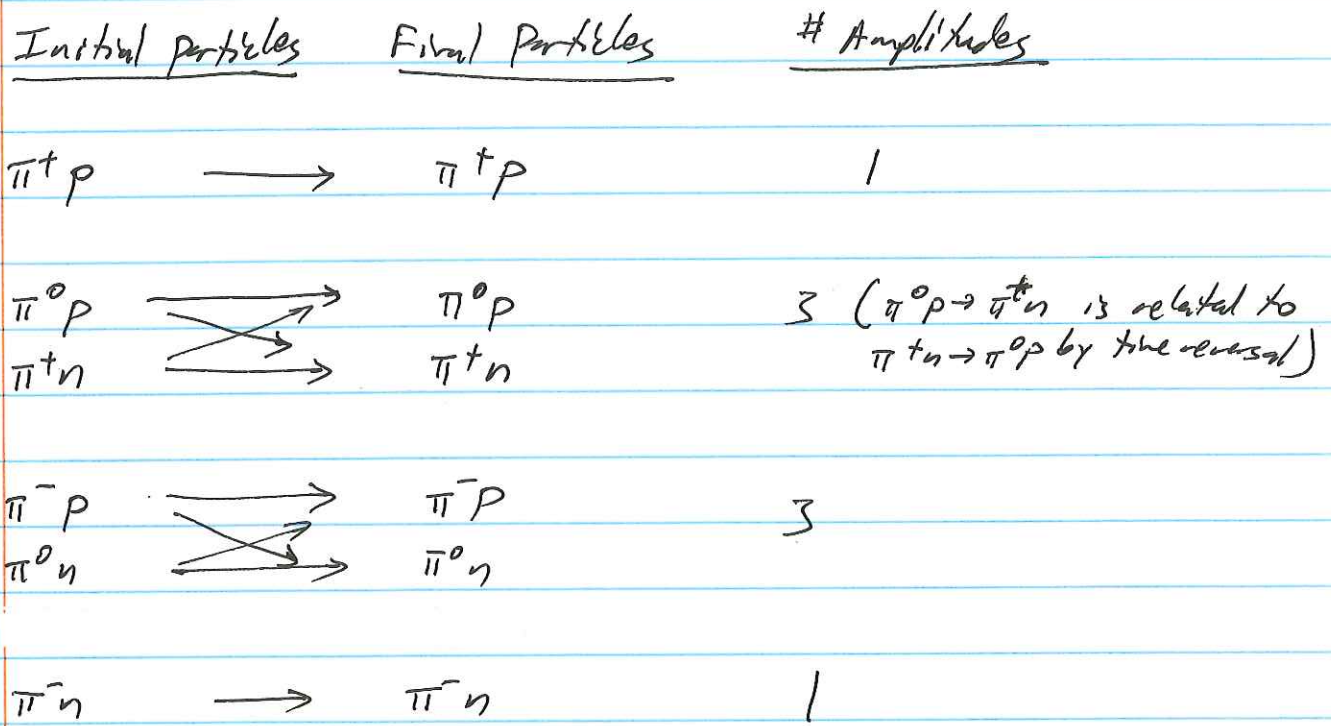 Initial particles Final Particles # Amplitudes
π⁺p → π⁺p 1
π⁰p π⁰p 3 (π⁰p → π⁺n is related to
π⁺n π⁺n π⁺n → π⁰p by time reversal)
π⁻p π⁻p 3
π⁰n π⁰n
π⁻n → π⁻n 1